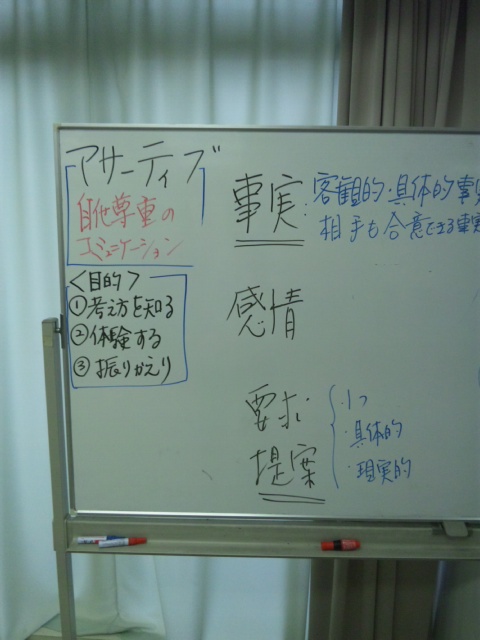 アサーティブ
自他尊重の
コミュニケーション
<目的>
①考え方を知る
②体験する
③振りかえり
事実:客観的・具体的事実
相手も合意できる事実
感情
要求・
提案
・1つ
・具体的
・現実的